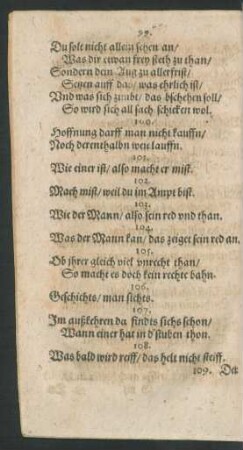 99.
Du solt nicht allein sehen an/
Was dir etwan frey steth zu than/
Sondern dein Aug zu allerfrist/
Setzen auff das/ was ehrlich ist/
Vnd was sich zimbt/ das bschehen soll/
So wird sich all sach schicken wol.
100.
Hoffnung darff man nicht kauffn/
Noch derenthalbn weit lauffn.
101.
Wie einer ist/ also macht er mist.
102.
Mach mist/ weil du im Ampt bist.
103.
Wie der Mann/ also sein red vnd than.
104.
Was der Mann kan/ das zeiget sein red an.
105.
Ob jhrer gleich viel vnrecht than/
So macht es doch kein rechte bahn.
106.
Geschichts/ man sichts.
107.
Im außkehren da findts sichs schon/
Wann einer hat in d'stuben thon.
108.
Was bald wird reiff/ das helt nicht steiff.
109. Der